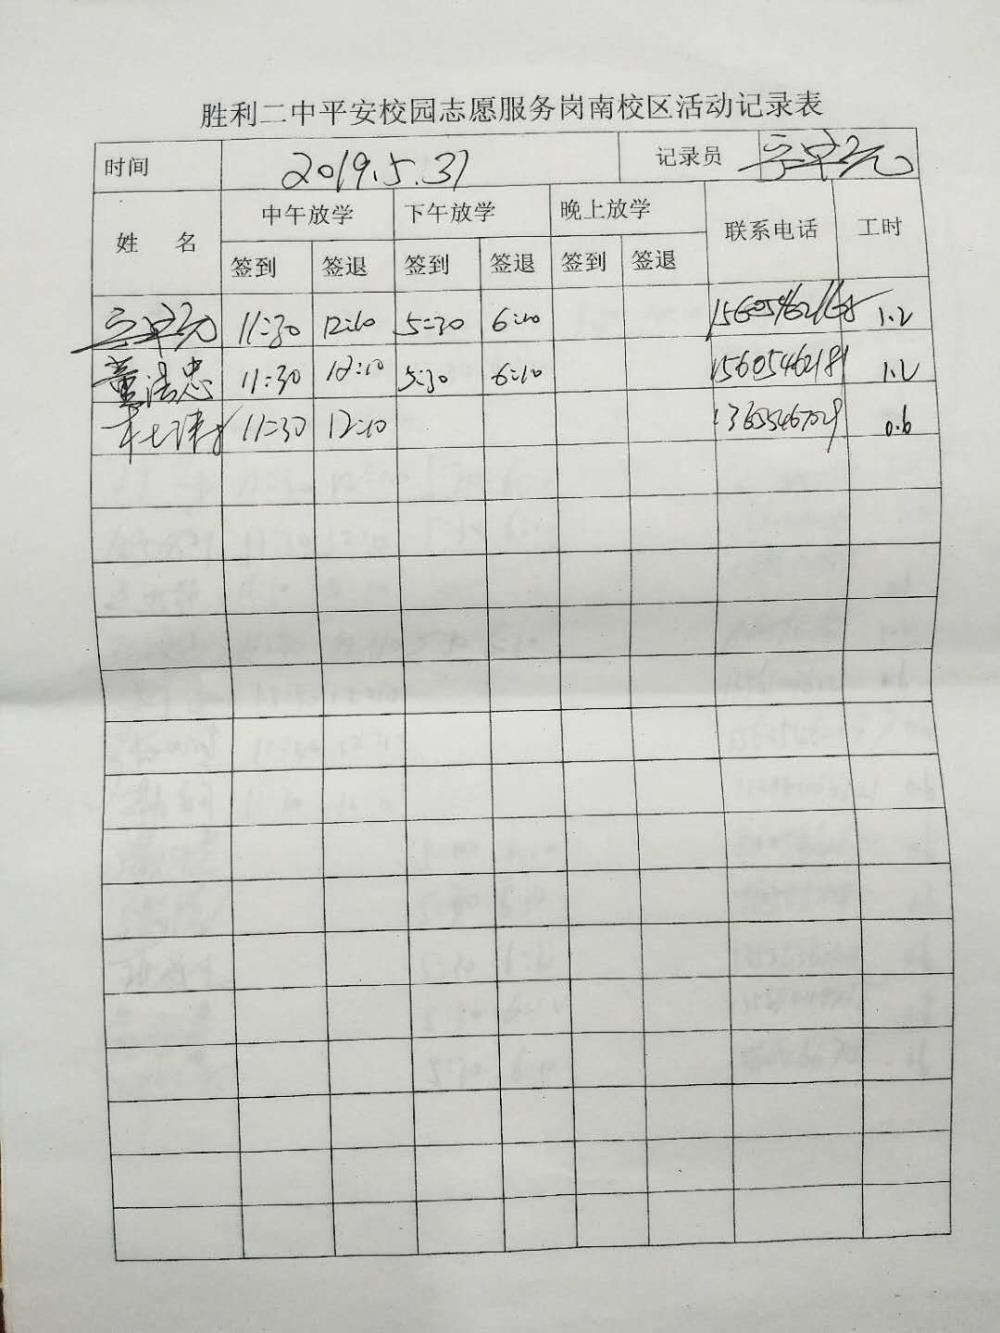 胜利二中平安校园志愿服务岗南校区活动记录表
时间 2019.5.31 记录员
姓 名 中午放学 下午放学 晚上放学 联系电话 工时
签到 签退 签到 签退 签到 签退
11:30 12:10 5:30 6:10 1.2
董浩忠 11:30 12:10 5:30 6:10 1.2
11:30 12:10 0.6